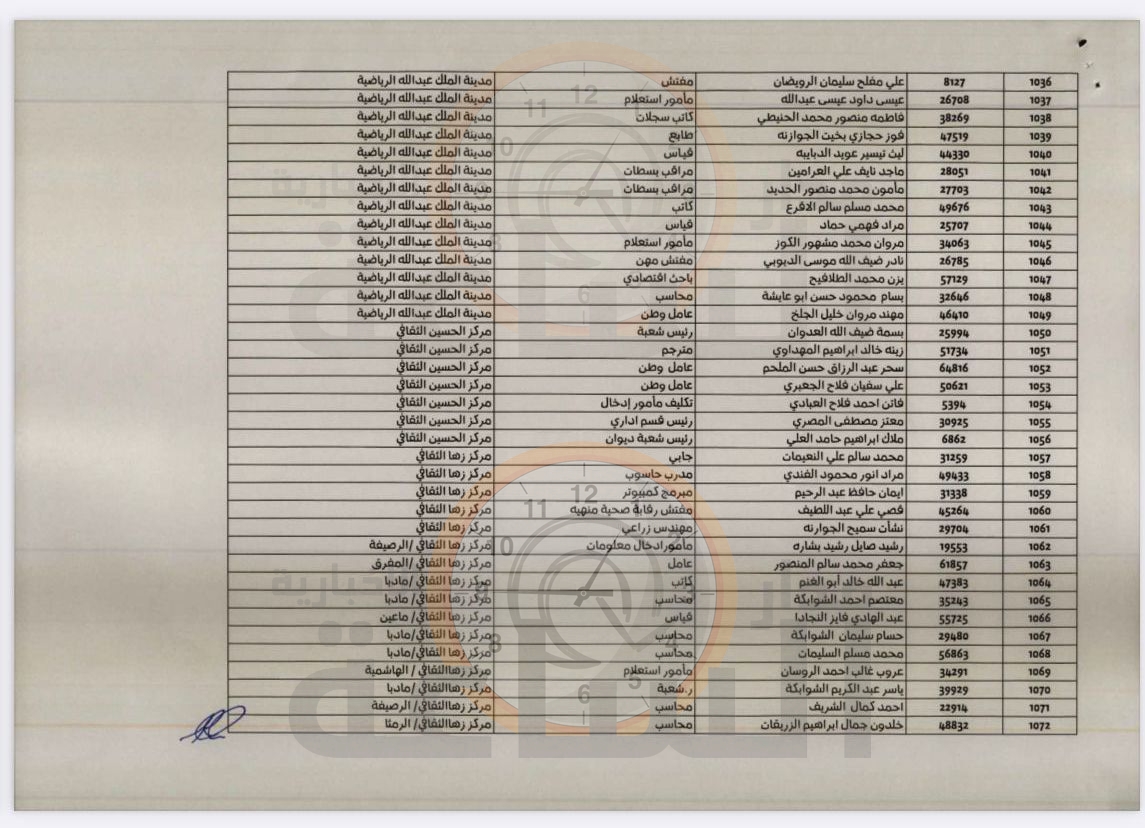 1036 8127 علي مفلح سليمان الرويضان مفتش مدينة الملك عبدالله الرياضية
1037 26708 عيسى داود عيسى عبدالله مأمور استعلام مدينة الملك عبدالله الرياضية
1038 38269 فاطمه منصور محمد الحنيطي كاتب سجلات مدينة الملك عبدالله الرياضية
1039 47519 فوز حجازي بخيت الجوازنه طابع مدينة الملك عبدالله الرياضية
1040 44330 ليث تيسير عويد الدبايبه قياس مدينة الملك عبدالله الرياضية
1041 28051 ماجد نايف علي العرامين مراقب بسطات مدينة الملك عبدالله الرياضية
1042 27703 مأمون محمد منصور الحديد مراقب بسطات مدينة الملك عبدالله الرياضية
1043 49676 محمد مسلم سالم الاقرع كاتب مدينة الملك عبدالله الرياضية
1044 25707 مراد فهمي حماد قياس مدينة الملك عبدالله الرياضية
1045 34063 مروان محمد مشهور الكوز مأمور استعلام مدينة الملك عبدالله الرياضية
1046 26785 نادر ضيف الله موسى الدبوبي مفتش مهن مدينة الملك عبدالله الرياضية
1047 57129 يزن محمد الطلافيح باحث اقتصادي مدينة الملك عبدالله الرياضية
1048 32646 بسام محمود حسن ابو عايشة محاسب مدينة الملك عبدالله الرياضية
1049 46410 مهند مروان خليل الجلخ عامل وطن مدينة الملك عبدالله الرياضية
1050 25994 بسمة ضيف الله العدوان رئيس شعبة مركز الحسين الثقافي
1051 51734 زينه خالد ابراهيم المهداوي مترجم مركز الحسين الثقافي
1052 64816 سحر عبد الرزاق حسن الملحم عامل وطن مركز الحسين الثقافي
1053 50621 علي سفيان فلاح الجعبري عامل وطن مركز الحسين الثقافي
1054 5394 فاتن احمد فلاح العبادي تكليف مأمور إدخال مركز الحسين الثقافي
1055 30925 معتز مصطفى المصري رئيس قسم اداري مركز الحسين الثقافي
1056 6862 ملاك ابراهيم حامد العلي رئيس شعبة ديوان مركز الحسين الثقافي
1057 31259 محمد سالم علي النعيمات جابي مركز زها الثقافي
1058 49433 مراد انور محمود الفندي مدرب حاسوب مركز زها الثقافي
1059 31338 ايمان حافظ عبد الرحيم مبرمج كمبيوتر مركز زها الثقافي
1060 45264 قصي علي عبد اللطيف مفتش رقابة صحية منهيه مركز زها الثقافي
1061 29704 نشأت سميح الجوارنه مهندس زراعي مركز زها الثقافي
1062 19553 رشيد صايل رشيد بشاره مأمورادخال معلومات مركز زها الثقافي /الرصيفة
1063 61857 جعفر محمد سالم المنصور عامل مركز زها الثقافي /المفرق
1064 47383 عبد الله خالد أبو الغنم كاتب مركز زها الثقافي /مادبا
1065 35243 معتصم احمد الشوابكة محاسب مركز زها الثقافي/ مادبا
1066 55725 عبد الهادي فايز النجادا قياس مركز زها الثقافي/ ماعين
1067 29480 حسام سليمان الشوابكة محاسب مركز زها الثقافي/مادبا
1068 56863 محمد مسلم السليمات محاسب مركز زها الثقافي/مادبا
1069 34291 عروب غالب احمد الروسان مأمور استعلام مركز زهاالثقافي / الهاشمية
1070 39929 ياسر عبد الكريم الشوابكة ر.شعبة مركز زهاالثقافي /مادبا
1071 22914 احمد كمال الشريف محاسب مركز زهاالثقافي/ الرصيفة
1072 48832 خلدون جمال ابراهيم الزريقات محاسب مركز زهاالثقافي/ الرمثا